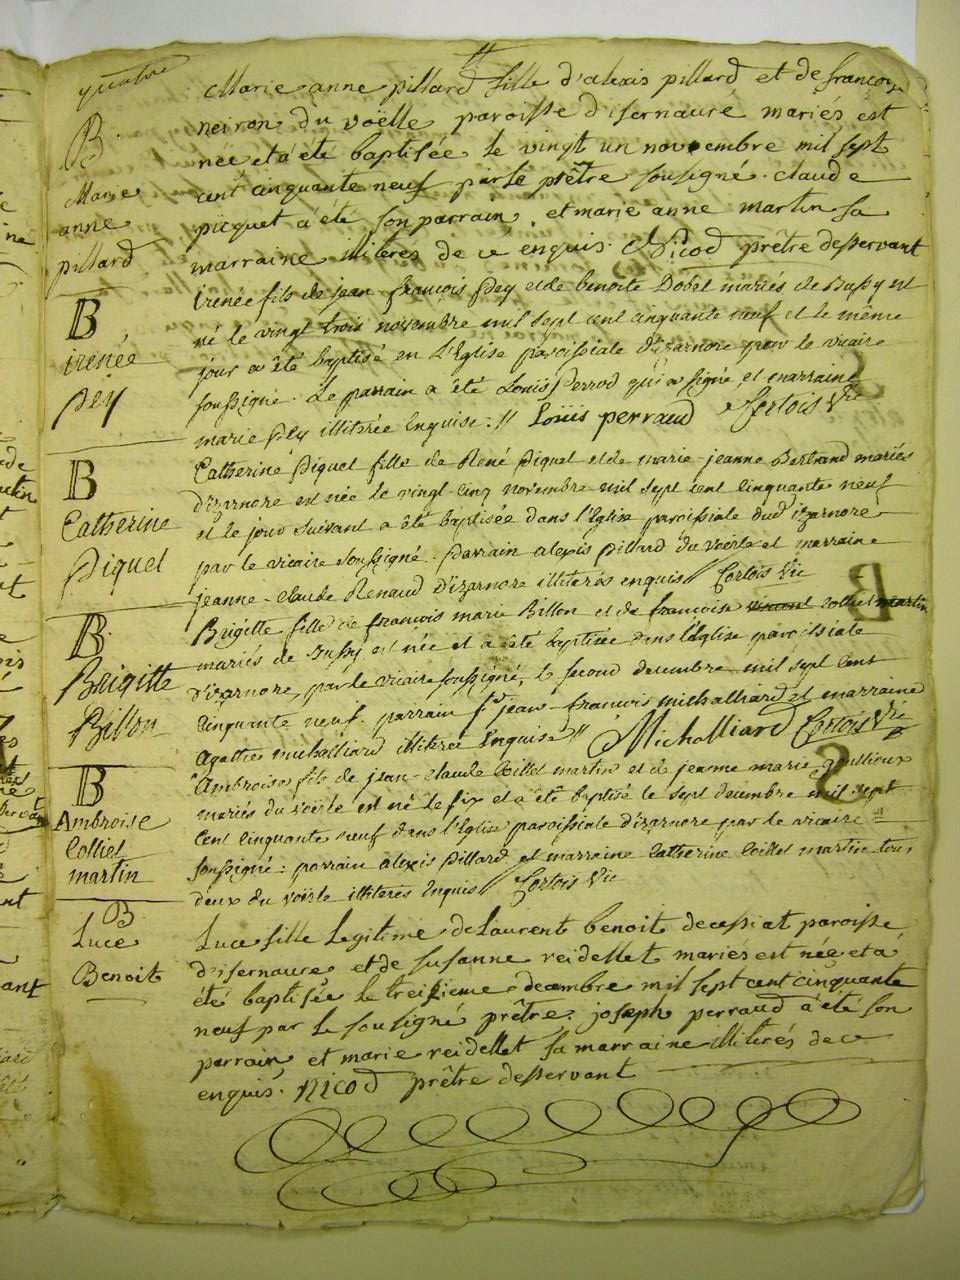 quatre
B
Marie
anne
pillard
Marie anne pillard fille d'alexis pillard et de francoise
neiron du voëlle paroisse d'isernaure mariés est
née et a été baptisée le vingt un novembre mil sept
cent cinquante neuf par le prêtre sousigné. claude
picquet a été son parrain, et marie anne martin sa
marraine illiteres de ce enquis. Nicod prêtre desservant
B
irenée
Pey
irenée fils de jean françois Pey et de benoite Dobet mariés de Bussy est
né le vingt trois novembre mil sept cent cinquante neuf et le même
jour a été baptisé en l'Eglise paroissiale d'izarnore par le vicaire
soussigné. Le parrain a été Louis Perrod qui a signé et marraine
marie Pey illiterée Enquise: // Loüis perraud Cortois Vic
B
Catherine
Piquet
Catherine Piquet fille de René Piquet et de marie-jeanne Bertrand mariés
d'izarnore est née le vingt-cinq novembre mil sept cent cinquante neuf
et le jour suivant a été baptisée dans l'Eglise paroissiale dud izarnore
par le vicaire soussigné. parrain alexis pillard du voërle et marraine
jeanne-claude Renaud d'izarnore illiterés enquis // Cortois Vic
B
Brigitte
Billon
Brigitte fille de françois marie Billon et de francoise collet martin
mariés de Bussy est née et a été baptisée dans l'Eglise paroissiale
d'izarnore, par le vicaire soussigné, le second decembre mil sept cent
cinquante neuf. parrain sr jean-francois michalliard et marraine
Agathe michalliard illiterée Enquise // Michalliard Cortois Vic
B
Ambroise
Colliet
martin
Ambroise fils de jean-claude Collet martin et de jeanne marie
mariés du voërle est né le six et a été baptisé le sept decembre mil sept
cent cinquante neuf dans l'Eglise paroissiale d'izarnore par le vicaire
soussigné: parrain alexis Pillard et marraine Catherine Collet martin tous
deux du voërle illiterés Enquis // Cortois Vic
B
Luce
Benoit
Luce fille Legitime de Laurent benoit decessiat paroisse
d'isernaure et de susanne reidellet mariés est née et a
été baptisée le treisieme decembre mil sept cent cinquante
neuf par le sousigné prêtre. joseph perraud a été son
parrain, et marie reidellet sa marraine illiterés de ce
enquis. Nicod prêtre desservant